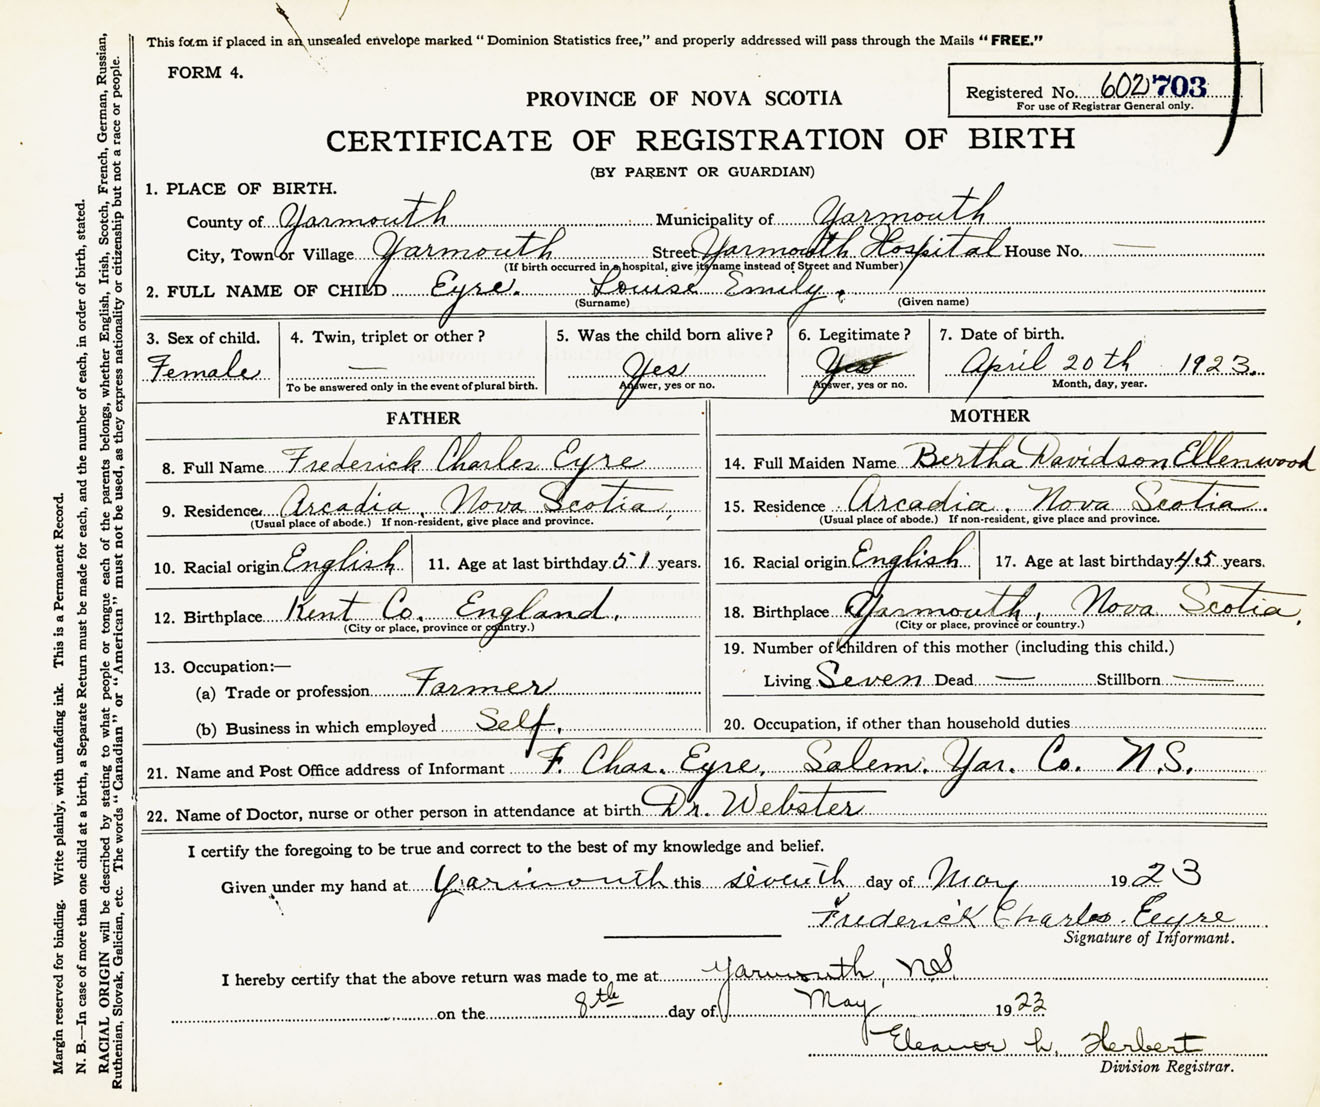 This form if placed in an unsealed envelope marked "Dominion Statistics free," and properly addressed will pass through the Mails "FREE."
FORM 4.
Registered No. 602703
For use of Registrar General only.
PROVINCE OF NOVA SCOTIA
CERTIFICATE OF REGISTRATION OF BIRTH
(BY PARENT OR GUARDIAN)
1. PLACE OF BIRTH.
County of Yarmouth Municipality of Yarmouth
City, Town or Village Yarmouth Street Yarmouth Hospital House No. —
(If birth occurred in a hospital, give its name instead of Street and Number)
2. FULL NAME OF CHILD Eyre. Louise Emily.
(Surname) (Given name)
3. Sex of child. 4. Twin, triplet or other? 5. Was the child born alive? 6. Legitimate? 7. Date of birth.
Female — Yes Yes April 20th 1923.
To be answered only in the event of plural birth. Answer, yes or no. Answer, yes or no. Month, day, year.
FATHER MOTHER
8. Full Name Frederick Charles Eyre 14. Full Maiden Name Bertha Davidson Ellenwood
9. Residence Arcadia, Nova Scotia, 15. Residence Arcadia, Nova Scotia.
(Usual place of abode.) If non-resident, give place and province. (Usual place of abode.) If non-resident, give place and province.
10. Racial origin English 11. Age at last birthday 51 years. 16. Racial origin English 17. Age at last birthday 45 years.
12. Birthplace Kent Co. England. 18. Birthplace Yarmouth, Nova Scotia.
(City or place, province or country.) (City or place, province or country.)
19. Number of children of this mother (including this child.)
13. Occupation:—
Living Seven Dead — Stillborn —
(a) Trade or profession Farmer
(b) Business in which employed Self. 20. Occupation, if other than household duties
21. Name and Post Office address of Informant F. Chas. Eyre, Salem. Yar. Co. N.S.
22. Name of Doctor, nurse or other person in attendance at birth Dr. Webster
I certify the foregoing to be true and correct to the best of my knowledge and belief.
Given under my hand at Yarmouth this seventh day of May 1923
Frederick Charles Eeyre
Signature of Informant.
I hereby certify that the above return was made to me at Yarmouth, N.S.
on the 8th day of May 1923
Eleanor L. Herbert
Division Registrar.
Margin reserved for binding. Write plainly, with unfading ink. This is a Permanent Record.
N. B.—In case of more than one child at a birth, a Separate Return must be made for each, and the number of each, in order of birth, stated.
RACIAL ORIGIN will be described by stating to what people or tongue each of the parents belongs, whether English, Irish, Scotch, French, German, Russian,
Ruthenian, Slovak, Galician, etc. The words "Canadian" or "American" must not be used, as they express nationality or citizenship but not a race or people.